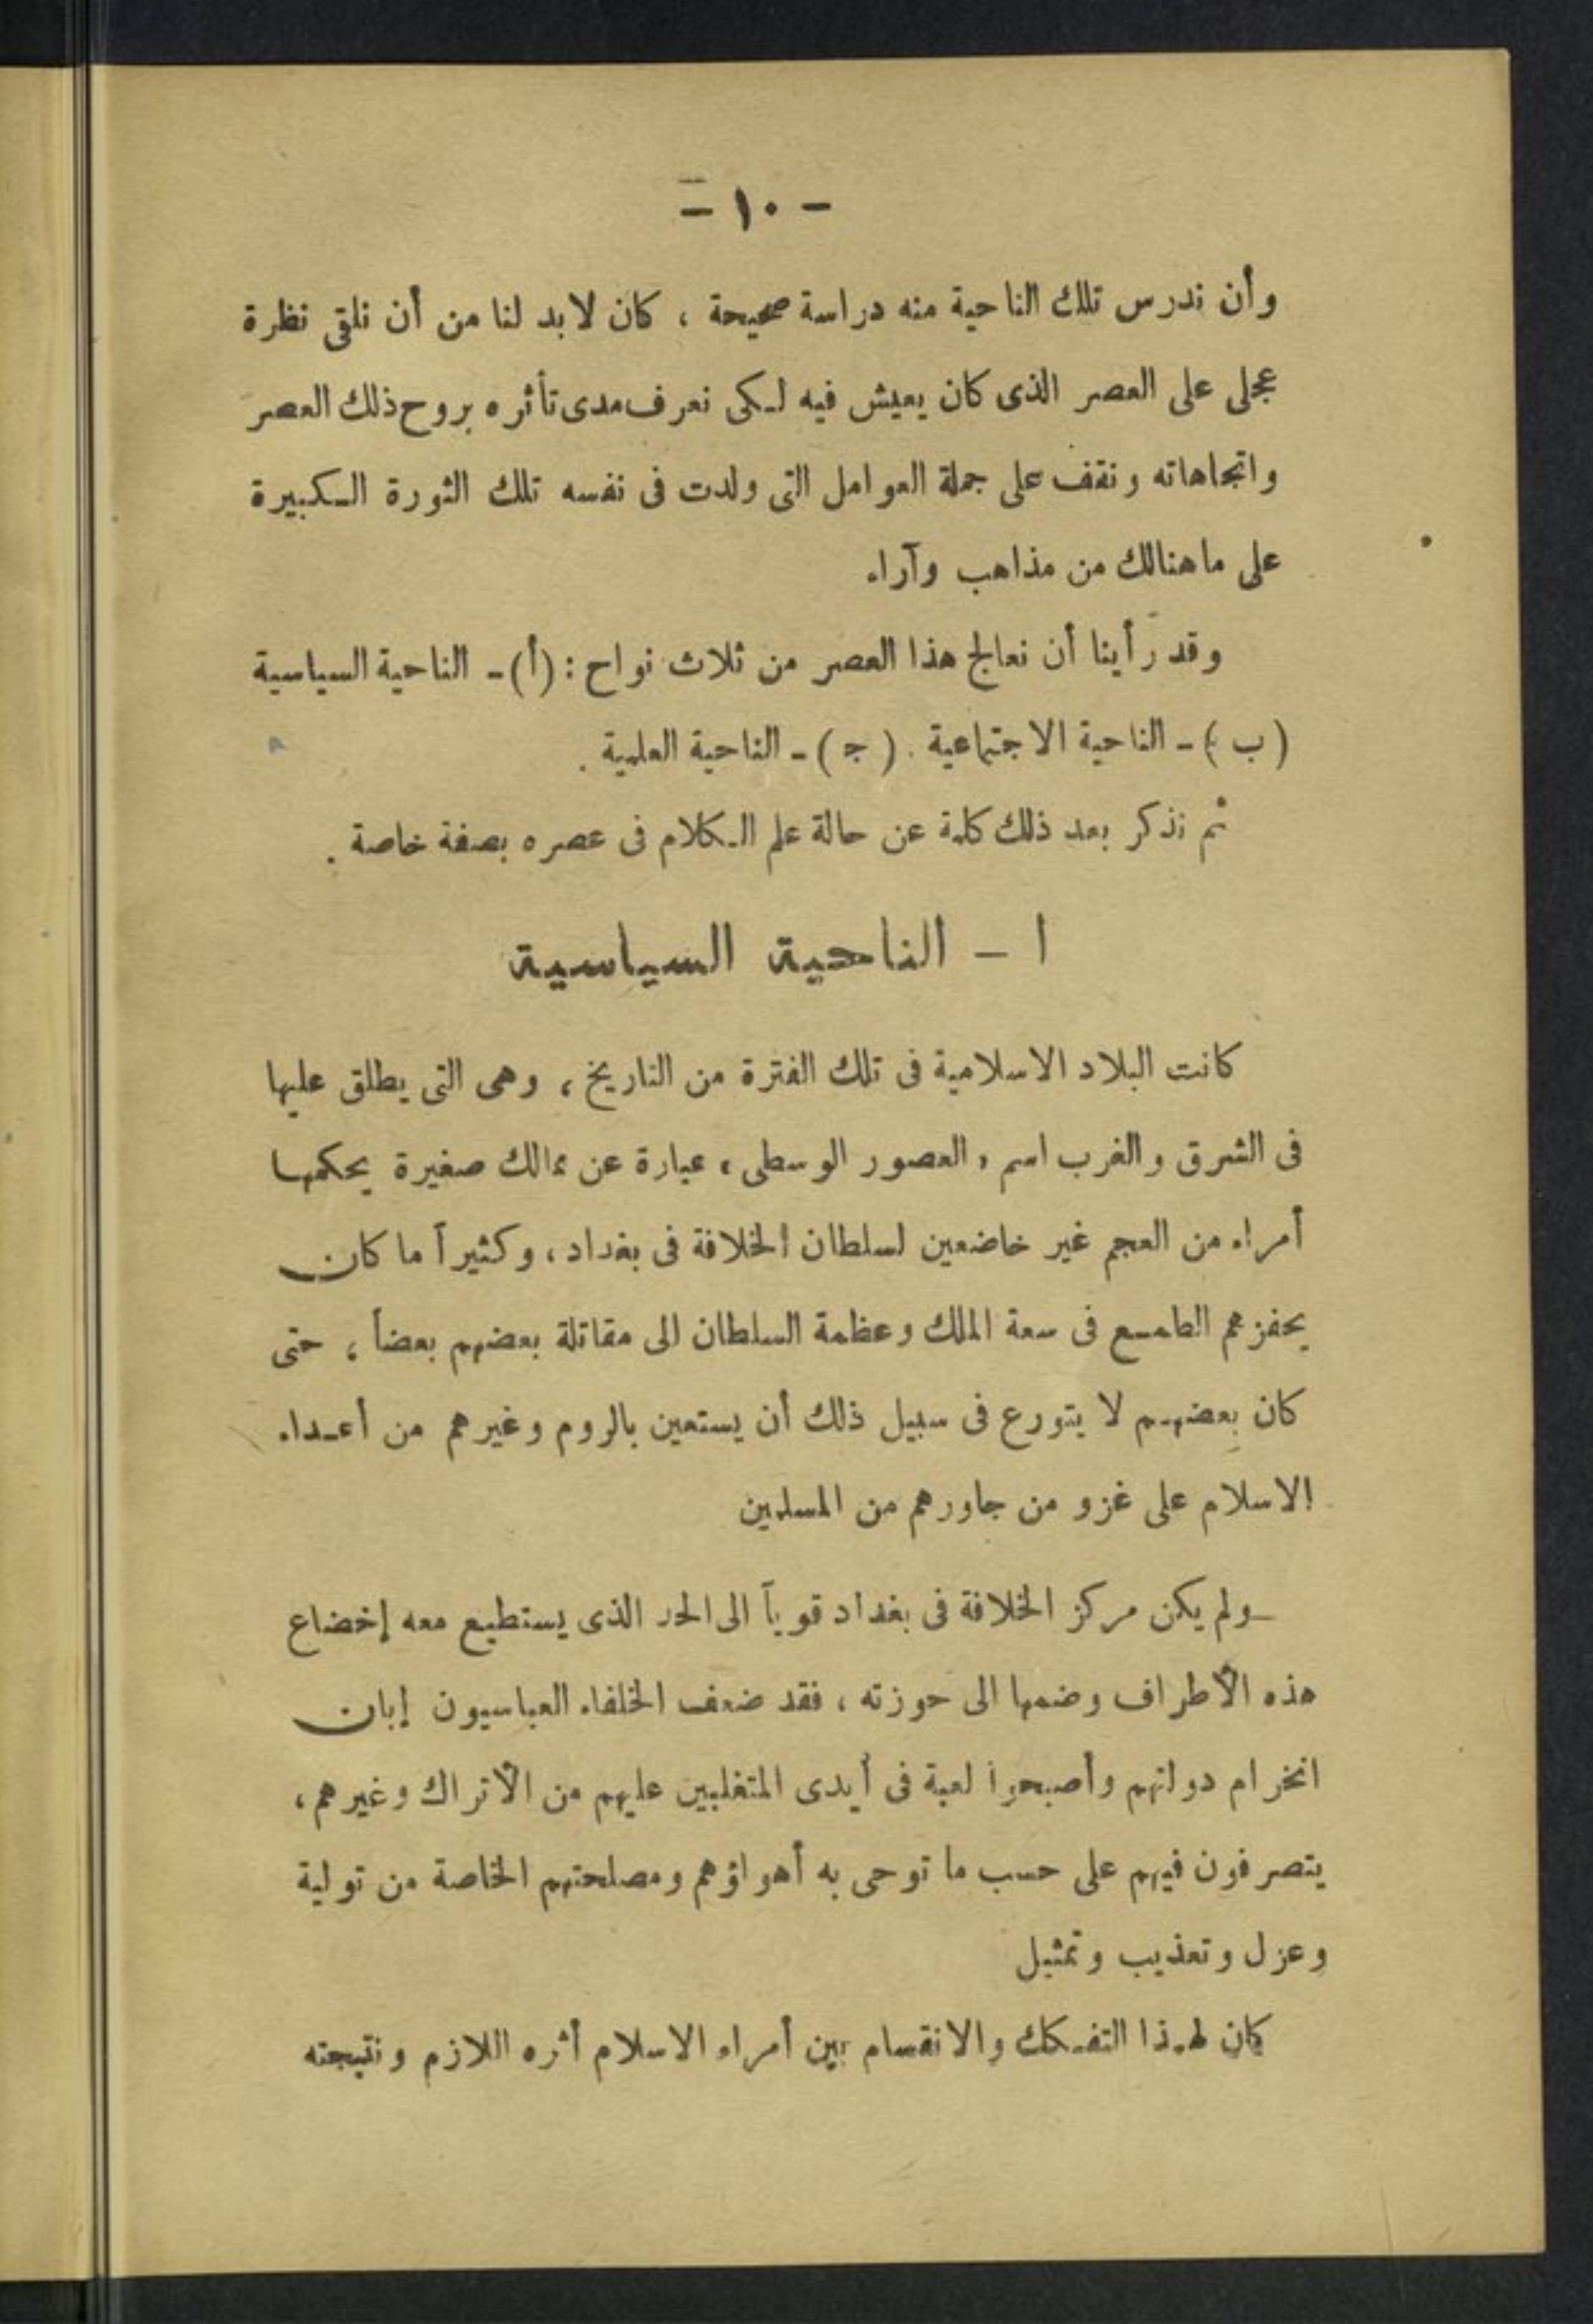 - ١٠ -
وأن ندرس تلك الناحية منه دراسة صحيحة ، كان لابد لنا من أن نلقى نظرة
عجلى على العصر الذى كان يعيش فيه لكى نعرف مدى تأثره بروح ذلك العصر
واتجاهاته ونقف على جملة العوامل التى ولدت فى نفسه تلك الثورة الكبيرة
على ماهنالك من مذاهب وآراء
وقد رأينا أن نعالج هذا العصر من ثلاث نواح : (أ) - الناحية السياسية
(ب) - الناحية الاجتماعية . (ج) - الناحية العلمية .
ثم نذكر بعد ذلك كلمة عن حالة علم الكلام فى عصره بصفة خاصة .
ا - الناحية السياسية
كانت البلاد الاسلامية فى تلك الفترة من التاريخ ، وهى التى يطلق عليها
فى الشرق والغرب اسم « العصور الوسطى » عبارة عن ممالك صغيرة يحكمها
أمراء من العجم غير خاضعين لسلطان الخلافة فى بغداد ، وكثيراً ما كان
يحفزهم الطامع فى سعة الملك وعظمة السلطان الى مقاتلة بعضهم بعضاً ، حتى
كان بعضهم لا يتورع فى سبيل ذلك أن يستعين بالروم وغيرهم من أعداء
الاسلام على غزو من جاورهم من المسلمين
ولم يكن مركز الخلافة فى بغداد قوياً الى الحد الذى يستطيع معه إخضاع
هذه الأطراف وضمها الى حوزته ، فقد ضعف الخلفاء العباسيون إبان
انخرام دولتهم وأصبحوا لعبة فى أيدى المتغلبين عليهم من الأتراك وغيرهم ،
يتصرفون فيهم على حسب ما توحى به أهواؤهم ومصلحتهم الخاصة من تولية
وعزل وتعذيب وتمثيل
كان لهذا التفكك والانقسام بين أمراء الاسلام أثره اللازم ونتيجته